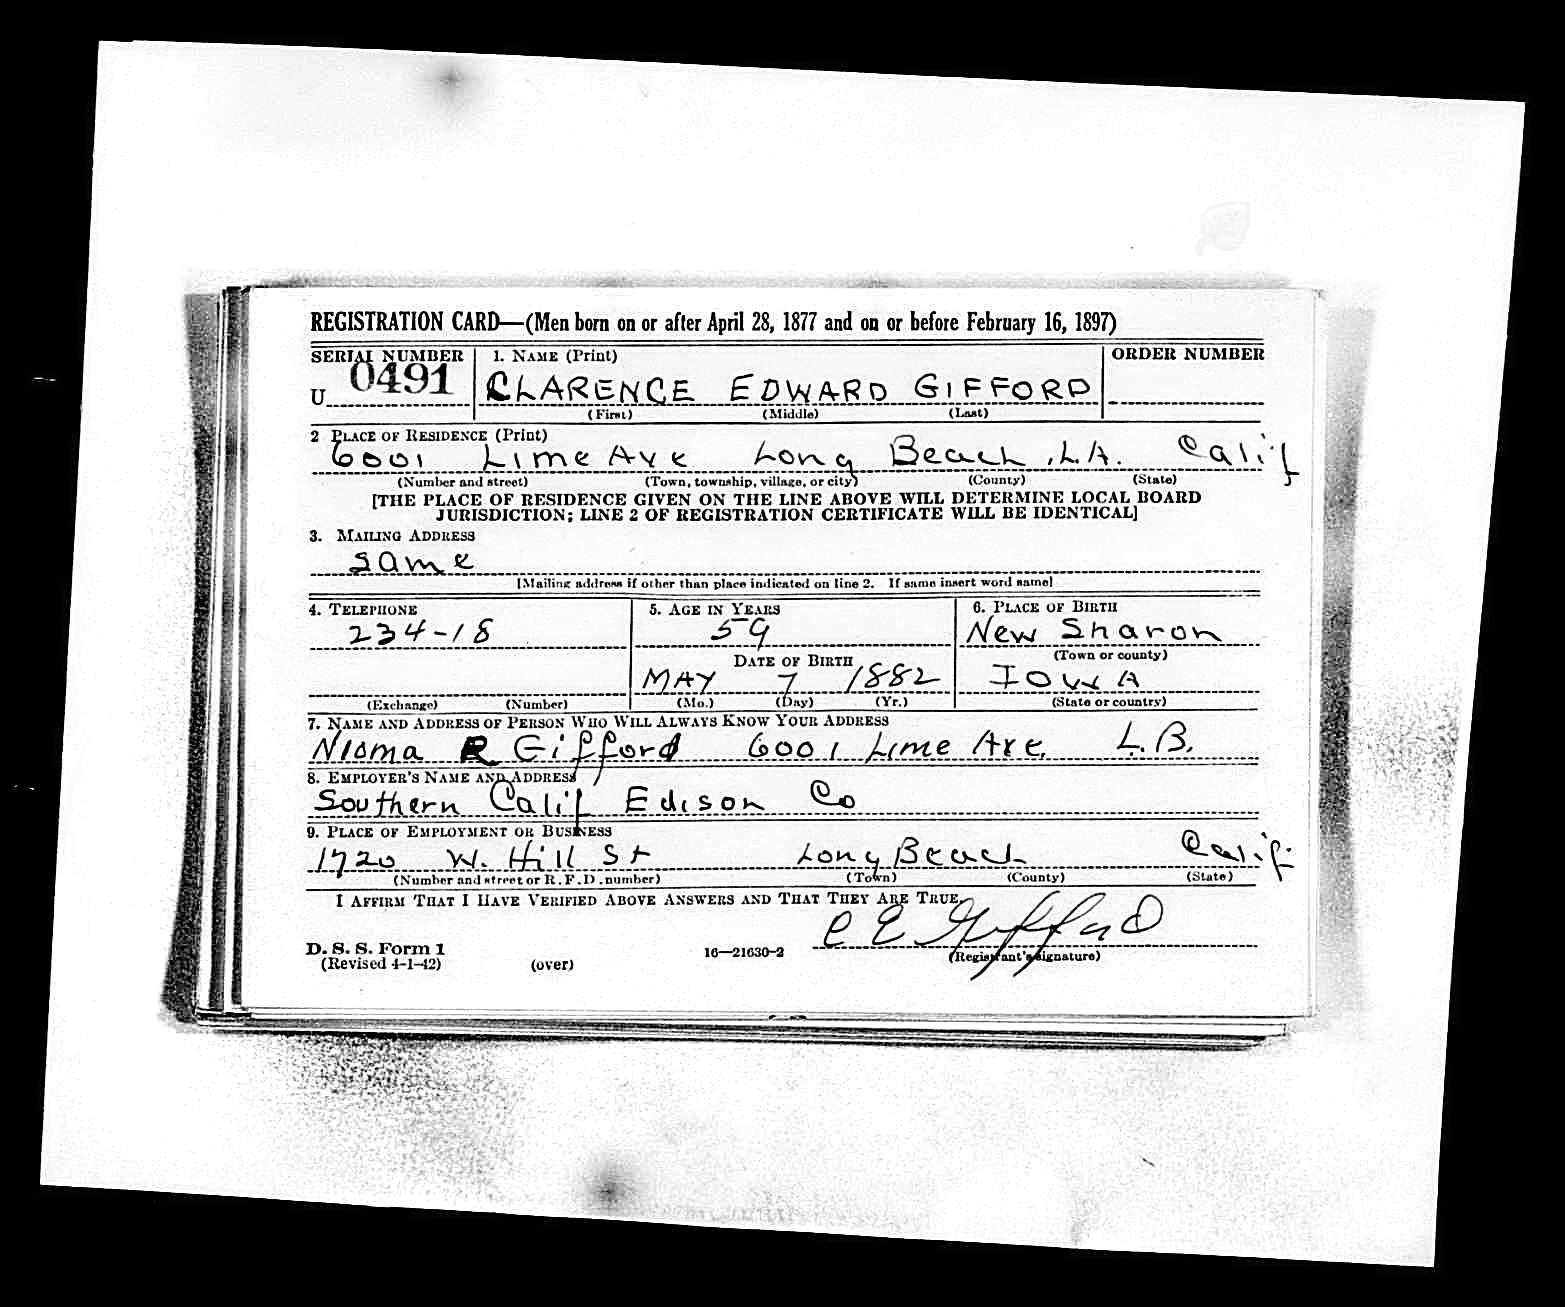 REGISTRATION CARD—(Men born on or after April 28, 1877 and on or before February 16, 1897)
SERIAL NUMBER 1. NAME (Print) ORDER NUMBER
U 0491 CLARENCE EDWARD GIFFORD
(First) (Middle) (Last)
2 PLACE OF RESIDENCE (Print)
6001 Lime Ave Long Beach, L.A. Calif
(Number and street) (Town, township, village, or city) (County) (State)
[THE PLACE OF RESIDENCE GIVEN ON THE LINE ABOVE WILL DETERMINE LOCAL BOARD
JURISDICTION; LINE 2 OF REGISTRATION CERTIFICATE WILL BE IDENTICAL]
3. MAILING ADDRESS
same
[Mailing address if other than place indicated on line 2. If same insert word same]
4. TELEPHONE 5. AGE IN YEARS 6. PLACE OF BIRTH
234-18 59 New Sharon
DATE OF BIRTH (Town or county)
MAY 7 1882 IOWA
(Exchange) (Number) (Mo.) (Day) (Yr.) (State or country)
7. NAME AND ADDRESS OF PERSON WHO WILL ALWAYS KNOW YOUR ADDRESS
Nioma R Gifford 6001 Lime Ave. L.B.
8. EMPLOYER'S NAME AND ADDRESS
Southern Calif Edison Co
9. PLACE OF EMPLOYMENT OR BUSINESS
1720 W. Hill St Long Beach Calif.
(Number and street or R.F.D. number) (Town) (County) (State)
I AFFIRM THAT I HAVE VERIFIED ABOVE ANSWERS AND THAT THEY ARE TRUE.
C E Gifford
D. S. S. Form 1
(Revised 4-1-42) (over) 16—21630-2 (Registrant's signature)